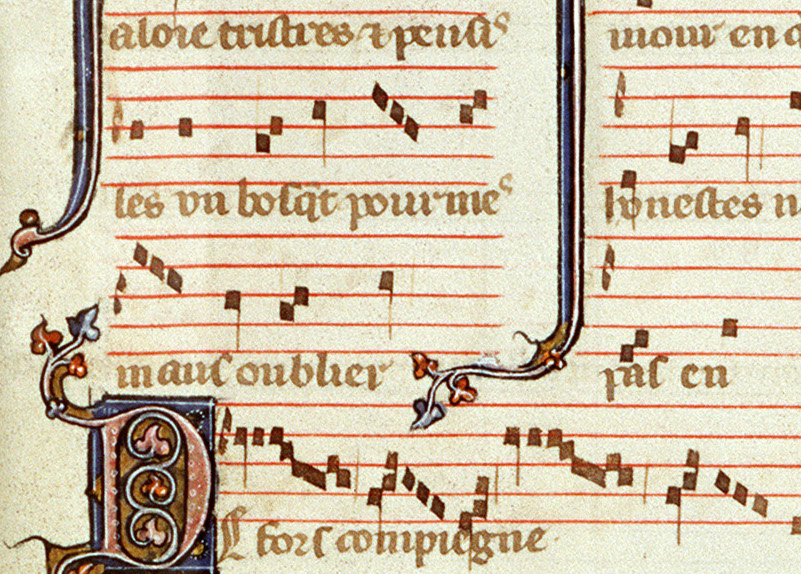 aloie tristres ⁊ pensis
les un bosqt pour me
maus oublier
DE fors compiegne
mour en
honestes n
pas en